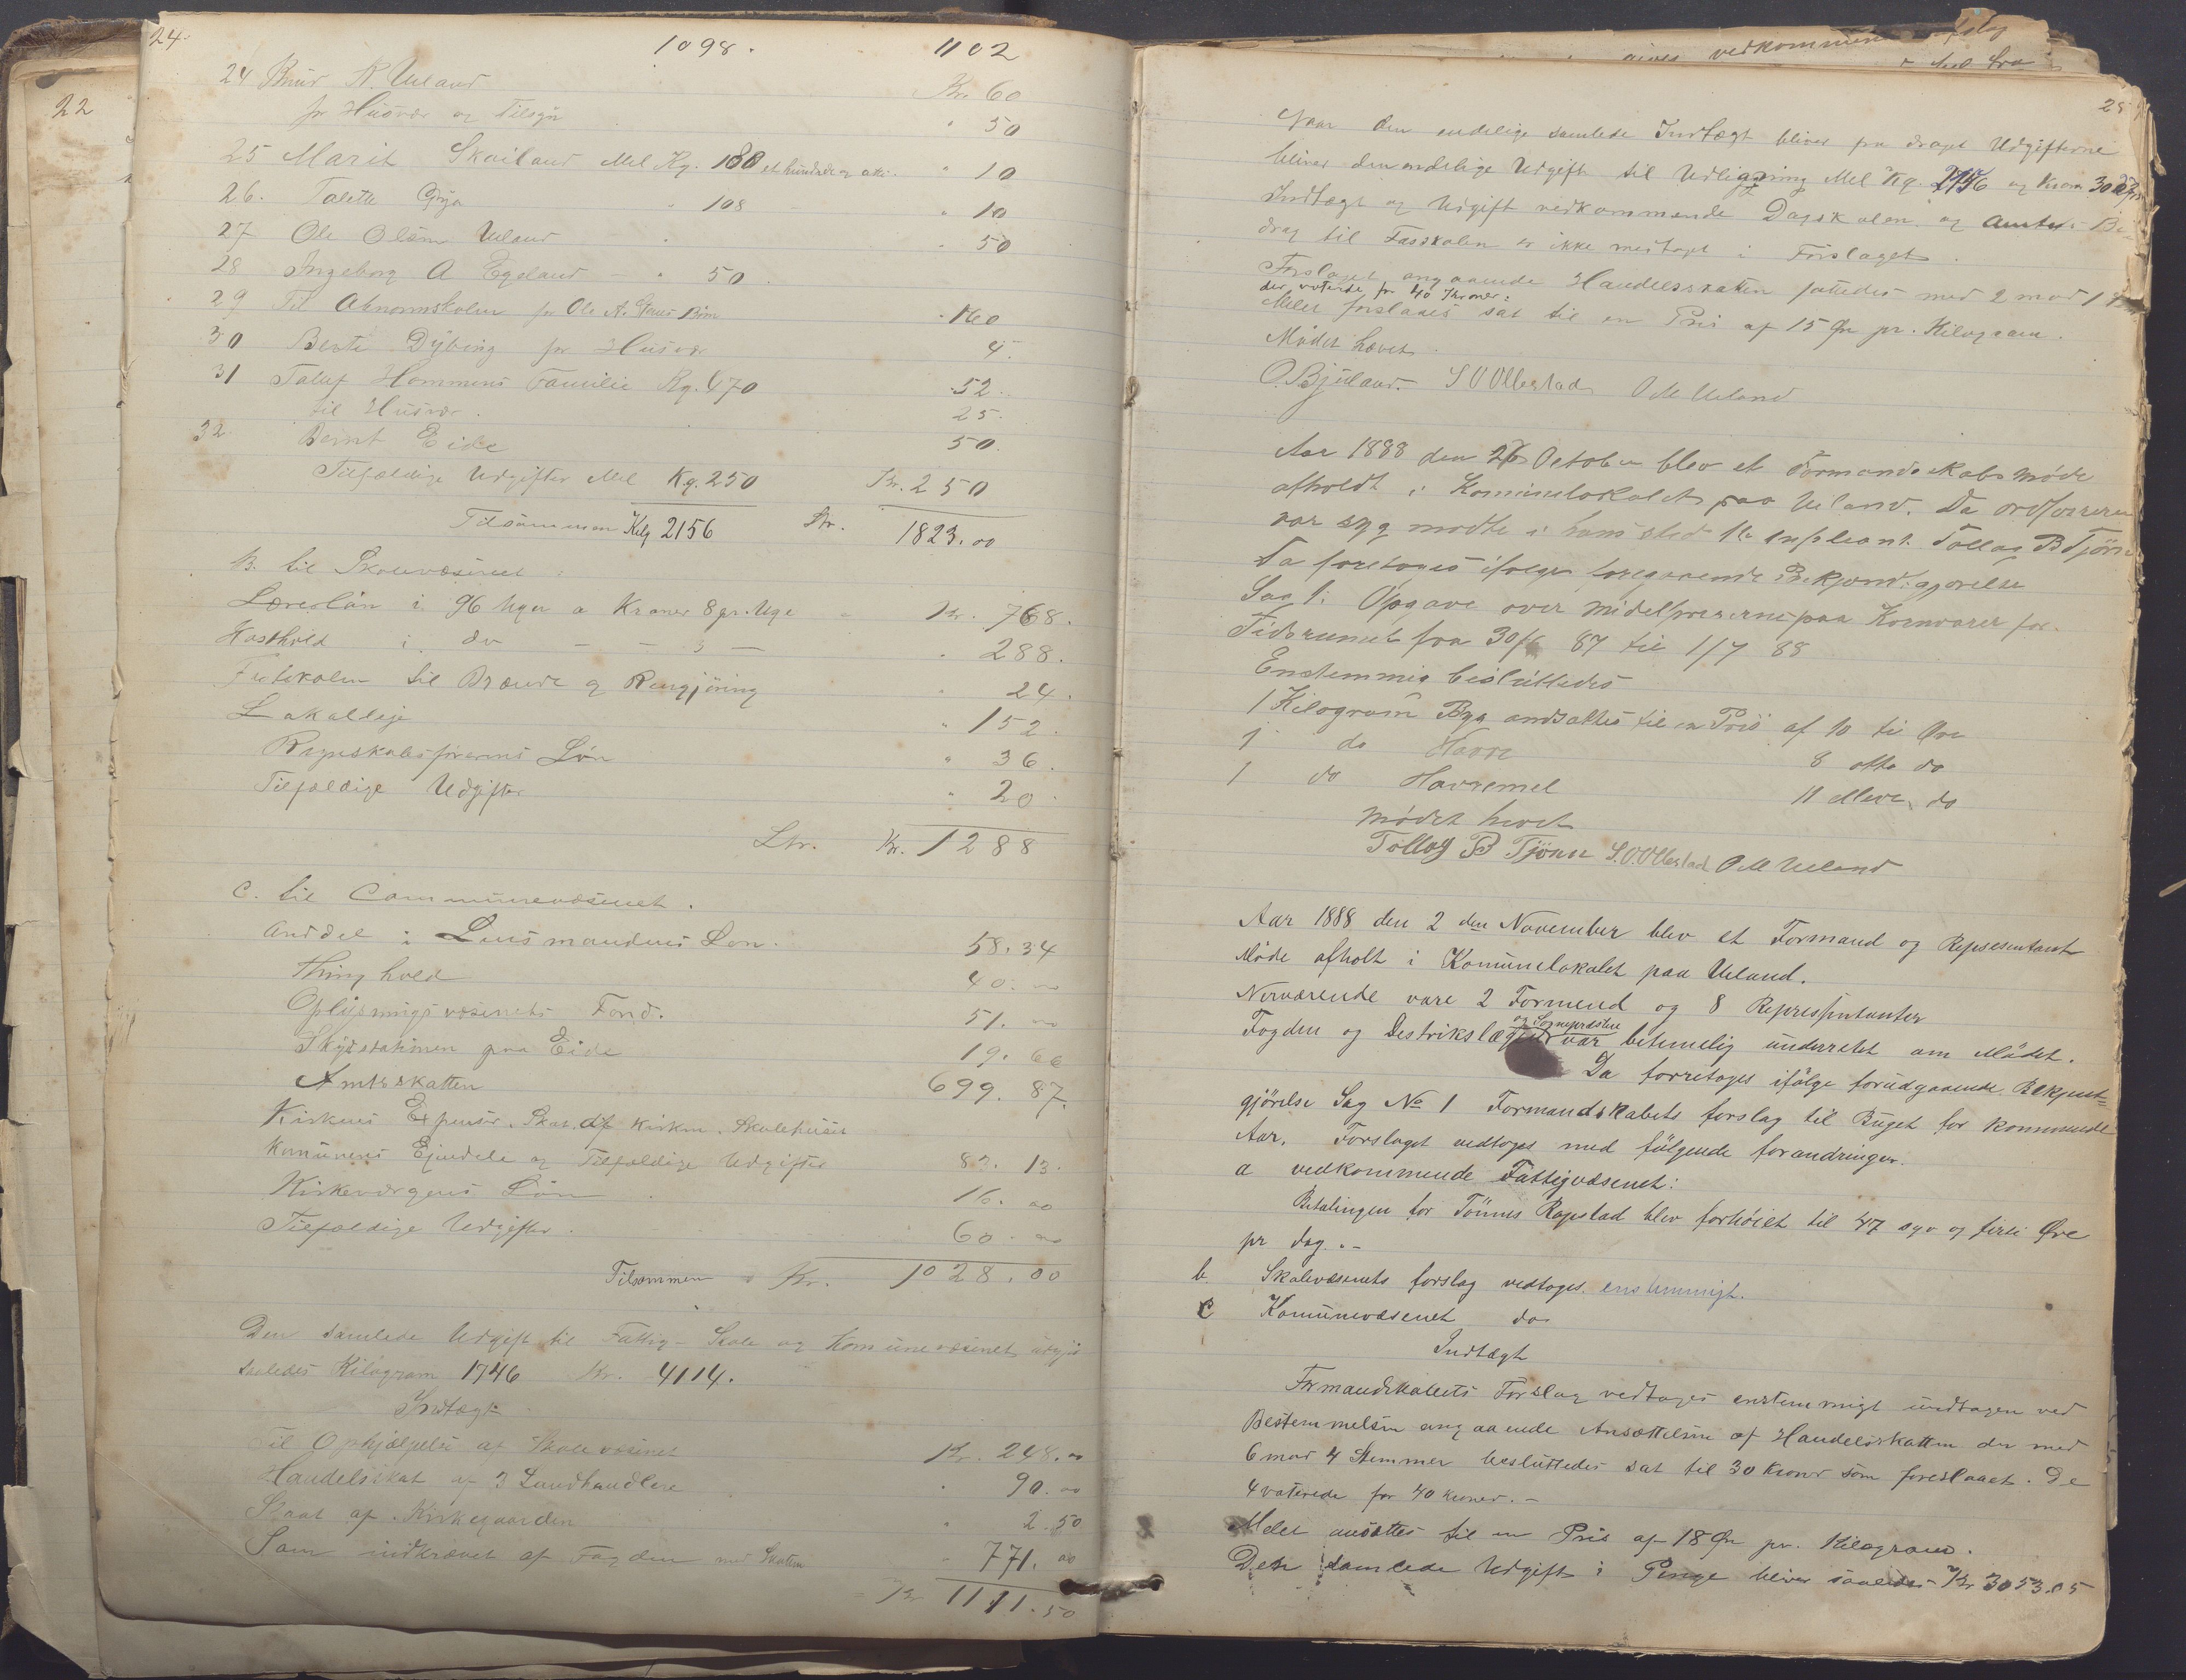 24.
22
1098. 1102
24 Knud N. Ueland Kr. 60
for Husvær og Tilsyn " 50
25 Marit Skailand Mel Kg. 180 et hundrede og otti. " 10
26. Talette Gya " 108 " 10
27 Ole Olsen Ueland " " 50
28 Ingeborg A Egeland - " 50
29 Til Abnormskolen for Ole A. Barn 160
30 Berte Dybing for Husvær 4.
31 Taluf Hommens Familie Kg. 470 52.
til Husvær. 25.
32. Bernt Eide 50.
Tilfældige Udgifter Mel Kg. 250 Kr. 250
Tilsammen Kilg 2156 Kr. 1823.00
B. til Skolevæsenet:
Lærerløn i 96 Uger a Kroner 8 pr. Uge - Kr. 768.
Kosthold i do - - 3 - " 288.
Fastskolen til Brænde og Rengjøring " 24.
Lokalleje " 152.
Regnskabsførerens Løn " 36.
Tilfældige Udgifter " 20.
Ltr. Kr. 1288
C. til Communevæsenet.
Anddel i Lensmandens Løn. 58.34
Thinghold 40.00
Oplysningsvæsenets Fond. 51.00
Skydsstationen paa Eide 19.66
Amtsskatten 699.87.
Kirkens Expenser, Skat. af Kirken. Skolehuset
Komunens Ejendele og Tilfældige Udgifter 83.13.
Kirkeværgens Løn 16.00
Tilfældige Udgifter. 60.00
Tilsammen Kr. 1028.00
Den samlede Udgift til Fattig- Skole og Komunevæsenet udgjør
saaledes Kilogram 1746 Kr. 4114.
Indtægt
Til Ophjælpelse af Skolevæsenet Kr. 248.00
Handelsskat af 3 Landhandlere " 90.00
Skat af Kirkegaarden " 2.50
Som indkrævet af Fogden med Skatten " 771.00
Kr 1111.50
25
Naar den endelige samlede Indtægt bliver fra draget Udgifterne
bliver den endelige Udgift til Udligning Mel Kg. 2156 og Kroner
Indtægt og Udgift vedkommende Dagskolen og Amtets Bi-
drag til Fastskolen er ikke medtaget i Forslaget.
Forslaget angaaende Handelsskatten fattedes med 2 mod 1
der voterede for 40 Kroner:
Melet forslaaes sat til en Pris af 15 Øre pr. Kilogram.
Mødet hævet.
O. Bjuland. S O Ollestad O M Ueland
Aar 1888 den 26 October blev et Formandskabsmøde
afholdt i Kommunelokalet paa Ueland. Da ordføreren
var syg mødte i hans sted 1te supleant Tollag B Tjørn
Da foretoges ifølge foregaaende Bekjendtgjørelse
Sag 1: Opgave over middelpriserne paa Kornvarer for
Tidsrumet fra 30/6 87 til 1/7 88
Enstemmig besluttedes
1 Kilogram Byg andsattes til en Pris af 10 ti Øre
1 do Havre 8 otte do
1 do Havremel 11 elleve do
Mødet hævet
Tollag B Tjønn S. O Ollestad O M Ueland
Aar 1888 den 2 den November blev et Formand og Repsesentant
Møde afholt i Komunelokalet paa Ueland.
Nerværende vare 2 Formend og 8 Represintanter
og Sognepræsten
Fogden og Destrikslægen var betimelig underretet om Mødet.
Da forretoges ifølge forudgaaende Bekjent=
gjörelse Sag No 1 Formandskabets forslag til Buget for kommende
Aar. Forslaget vedtoges med fölgende forandringer.
a vedkommende Fattigvæsenet:
Betalingen for Tönnes Rapstad blev forhöiet til 47 syv og firti Øre
pr dag. -
b. Skolevæsenets forslag vedtoges enstemmigt.
C Komunevæsenet do
Indtægt
Formandskabets Forslag vedtoges enstemmigt undtagen ved
Bestemmelsen angaaende Ansættelsen af Handelsskatten der med
6 mod 4 Stemmer besluttedes sat til 30 Kroner som foreslaaet. De
4 voterede for 40 kroner. -
Melet ansættes til en Pris af 18 Øre pr. Kilogram.
Den samlede Udgift i Penge bliver saaledes Kr 3053.05